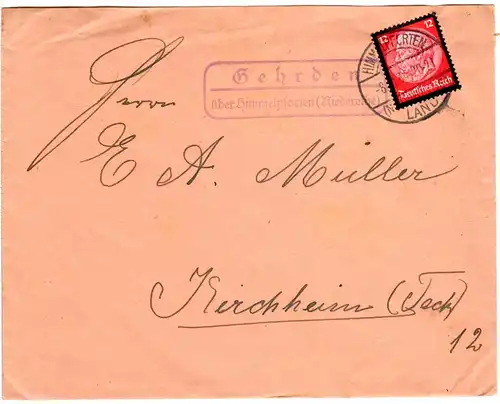 12 12
Deutsches Reich
HIMMELPFORTEN
LAND
Gehrden
über Himmelpforten (Niederelbe)
Herrn
E A. Müller
Kirchheim (Teck)
12